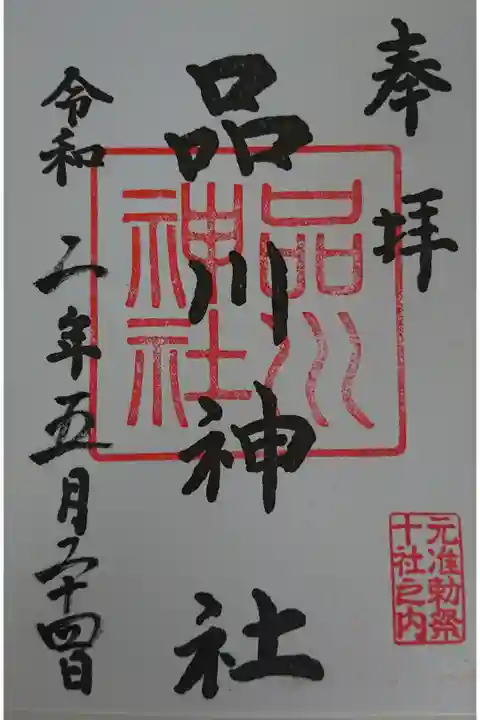 奉拝
品川神社
品川神社
令和二年五月二十四日
元准勅祭
十社之内